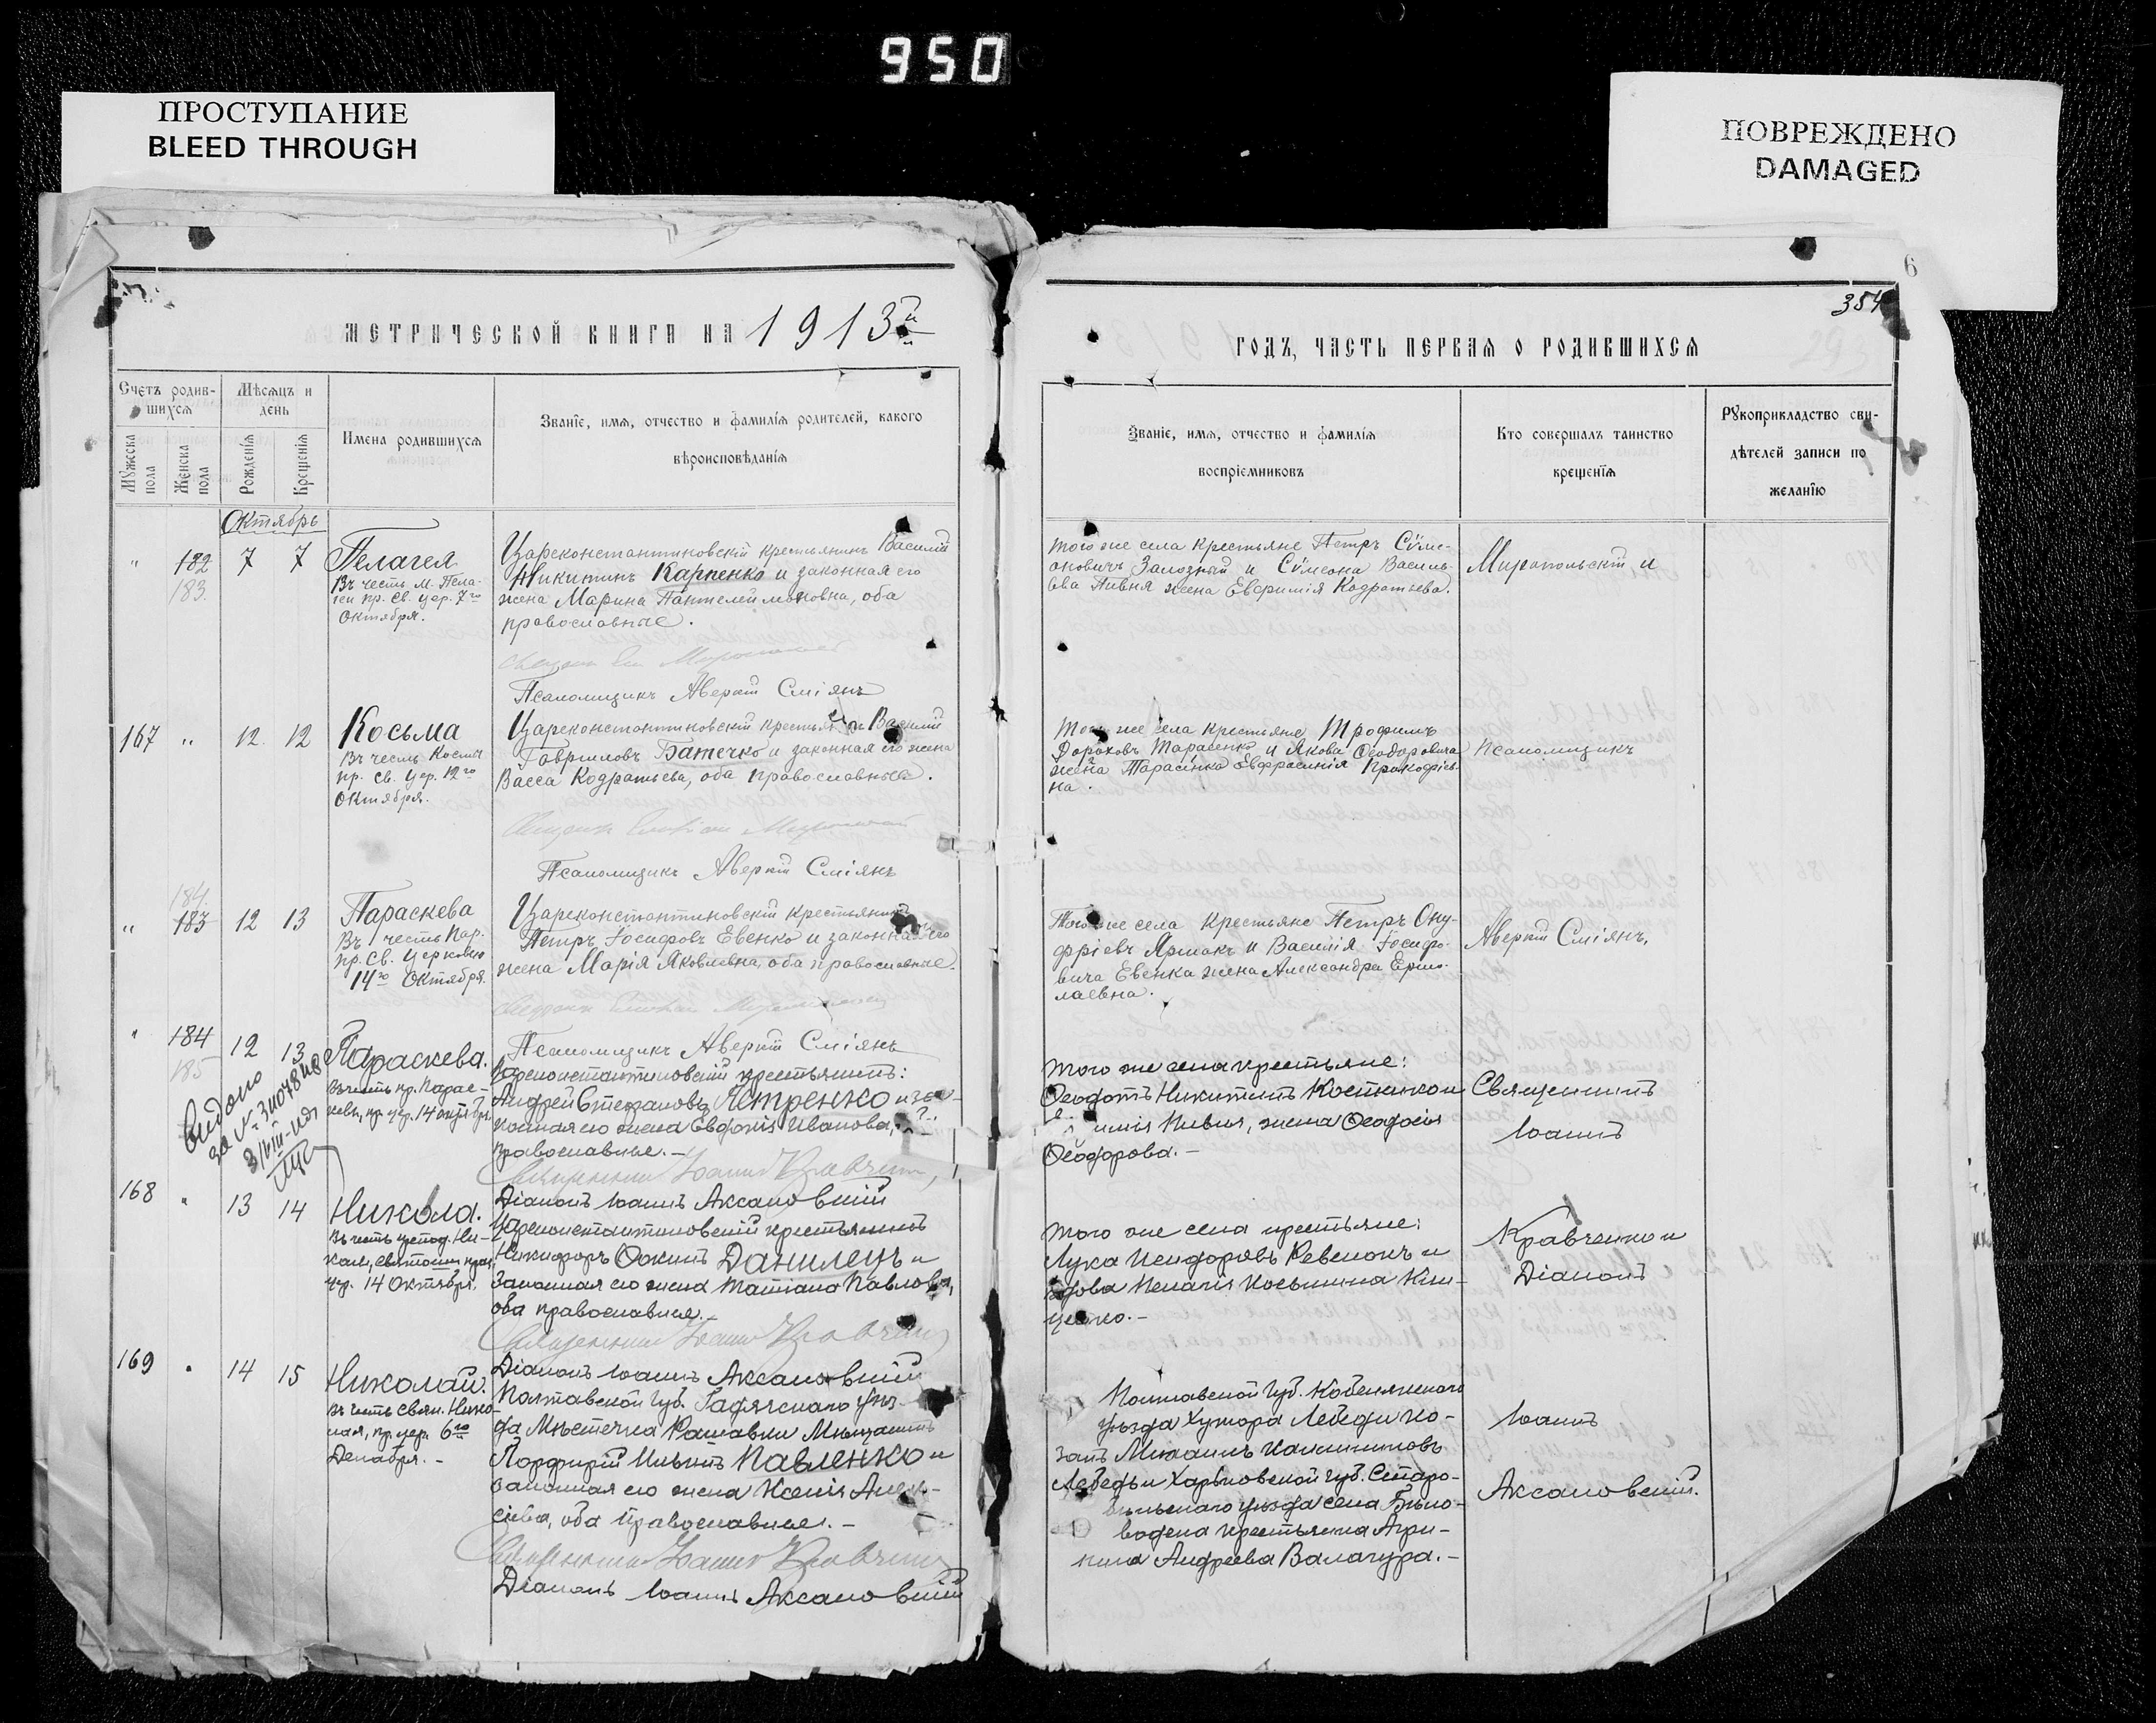 950
ПРОСТУПАНИЕ
BLEED THROUGH
ПОВРЕЖДЕНО
DAMAGED
6
354
МЕТРИЧЕСКОЙ КНИГИ НА 1913й
ГОДЪ, ЧАСТЬ ПЕРВАЯ О РОДИВШИХСЯ
Счетъ родив-
шихся
Мѣсяцъ и
день
Мужеска
пола
Женска
пола
Рожденїя
Крещенїя
Имена родившихся
Званїе, имя, отчество и фамилїя родителей, какого
вѣроисповѣданїя
Званїе, имя, отчество и фамилїя
воспрїемниковъ
Кто совершалъ таинство
крещенїя
Рукоприкладство сви-
дѣтелей записи по
желанїю
Октябрь
" 182 7 7
183.
Пелагея
Въ честь М. Пела-
геи пр. св. цер. 7го
Октября.
Цареконстантиновскій крестьянинъ Василій
Никитинъ Карпенко и законная его
жена Марина Пантелеимоновна, оба
православные.
Псаломщикъ Аверкій Сміянъ
того же села крестьяне Петръ Сѵме-
оновичъ Залозный и Сѵмеона Василь-
ева Пивня жена Евфимія Кодратьева.
Миропольскій и
167 " 12 12
Косьма
Въ честь Космы
пр. св. цер. 12го
Октября.
Цареконстантиновскій Василій
Гавриловъ Батечко и законная его жена
Васса Кодратьева, оба православные.
Псаломщикъ Аверкій Сміянъ
Того же села крестьяне Трофимъ
Тарасенко и Якова Ѳеодоровича
жена Тарасенка Евфросинія Прокофіев-
на.
Псаломщикъ
184.
" 183 12 13
Параскева
Въ честь Пар.
пр. св. церковію
14го Октября.
Цареконстантиновскій крестьянинъ
Петръ Іосифовъ Евенко и законная его
жена Марія Яковлевна, оба православные.
Псаломщикъ Аверкій Сміянъ
Того же села крестьяне Петръ Ону-
фріевъ Ярмакъ и Василія Іосифо-
вича Евенка жена Александра Ермо-
лаевна.
Аверкій Сміянъ.
" 184 12 13
185
Параскева.
Въ честь пр. Парас-
кевы, пр. цер. 14 октября
Цареконстантиновскій крестьянинъ:
Андрей Стефановъ Ястренко и зак-
конная его жена Евдокія Иванова,
православные.—
Священникъ Іоаннъ Кравченко
Діаконъ Іоаннъ Аксановскій
Того же села крестьяне:
Ѳеодотъ Никитинъ Костенко и
Пивня, жена Ѳеодосія
Ѳеодорова.—
Священникъ
Іоаннъ
видано
168 " 13 14
Никола.
цер. 14 Октября.
Цареконстантиновскій крестьянинъ
Никифоръ Ѳокинъ Данилецъ и
Законная его жена Татіана Павлова,
оба православные.—
Священникъ Іоаннъ Кравченко
Діаконъ Іоаннъ Аксановскій
того же села крестьяне:
Лука Исидоровъ Ревенокъ и
вдова Пелагія Косьмина Кли-
ценко.—
Кравченко и
Діаконъ
169 " 14 15
Николай.
въ честь Свят. Нико-
лая, пр. цер. 6го
Декабря.—
Полтавской губ. Гадячскаго уѣз-
да Мѣстечка Рашавки Мѣщанинъ
Порфирій Ильинъ Павленко и
законная его жена Ксенія Алек-
сіева, оба Православные.—
Священникъ Іоаннъ Кравченко
Діаконъ Іоаннъ Аксановскій
Полтавской губ. Кобелянскаго
уѣзда хутора Лебеди ко-
закъ Михаилъ Каллиниковъ
Лебедь и Харьковской губ. Старо-
бѣльскаго уѣзда села Бѣло-
водска крестьянка Агри-
пина Андреева Валачура.—
Іоаннъ
Аксановскій.